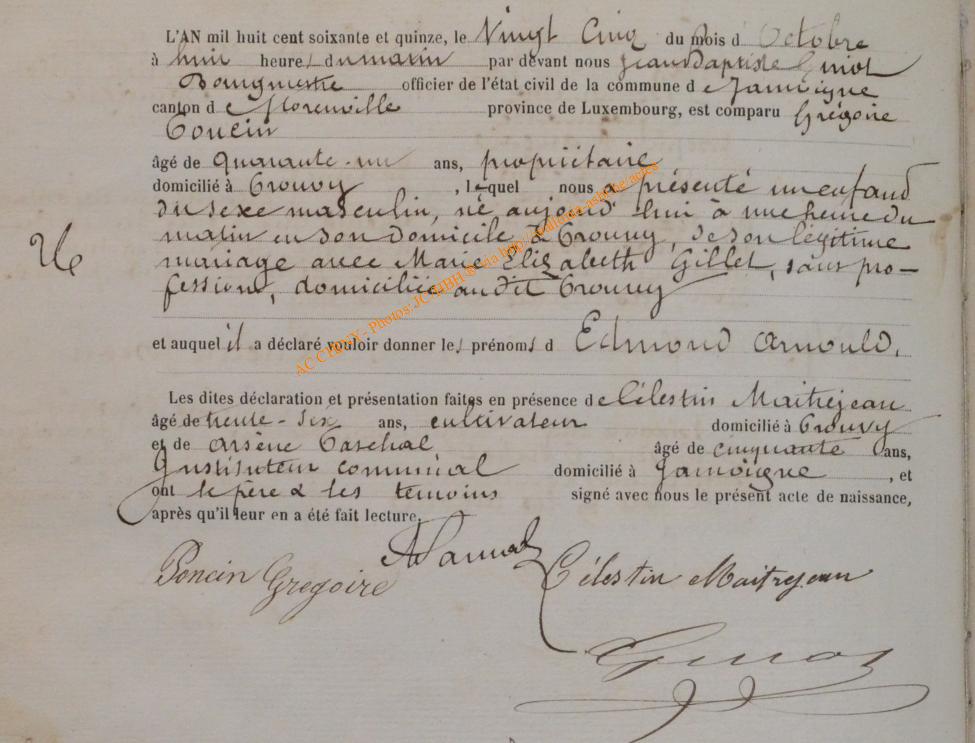 L'AN mil huit cent soixante et quinze, le Vingt Cinq du mois d'Octobre
à huit heures du matin par devant nous Jean Baptiste Guiot
Bourgmestre officier de l'état civil de la commune de Jamoigne
canton de Florenville province de Luxembourg, est comparu Grégoire
Poncin
âgé de quarante-un ans, propriétaire
domicilié à Prouvy, lequel nous a présenté un enfant
du sexe masculin, né aujourd'hui à une heure du
matin en son domicile à Prouvy, de son légitime
mariage avec Marie Elizabeth Gillet, sans pro-
fession, domiciliée au dit Prouvy
et auquel il a déclaré vouloir donner les prénoms d Edmond Arnould.
Les dites déclaration et présentation faites en présence de Célestin Maitrejean
âgé de trente-six ans, cultivateur domicilié à Prouvy
et de Arsène Paschal âgé de cinquante ans,
Instituteur communal domicilié à Jamoigne, et
ont le père & les témoins signé avec nous le présent acte de naissance,
après qu'il leur en a été fait lecture.
Poncin Gregoire
Célestin Maitrejean
Guiot
AC CHINY - Photos: JC HBH ® via http://